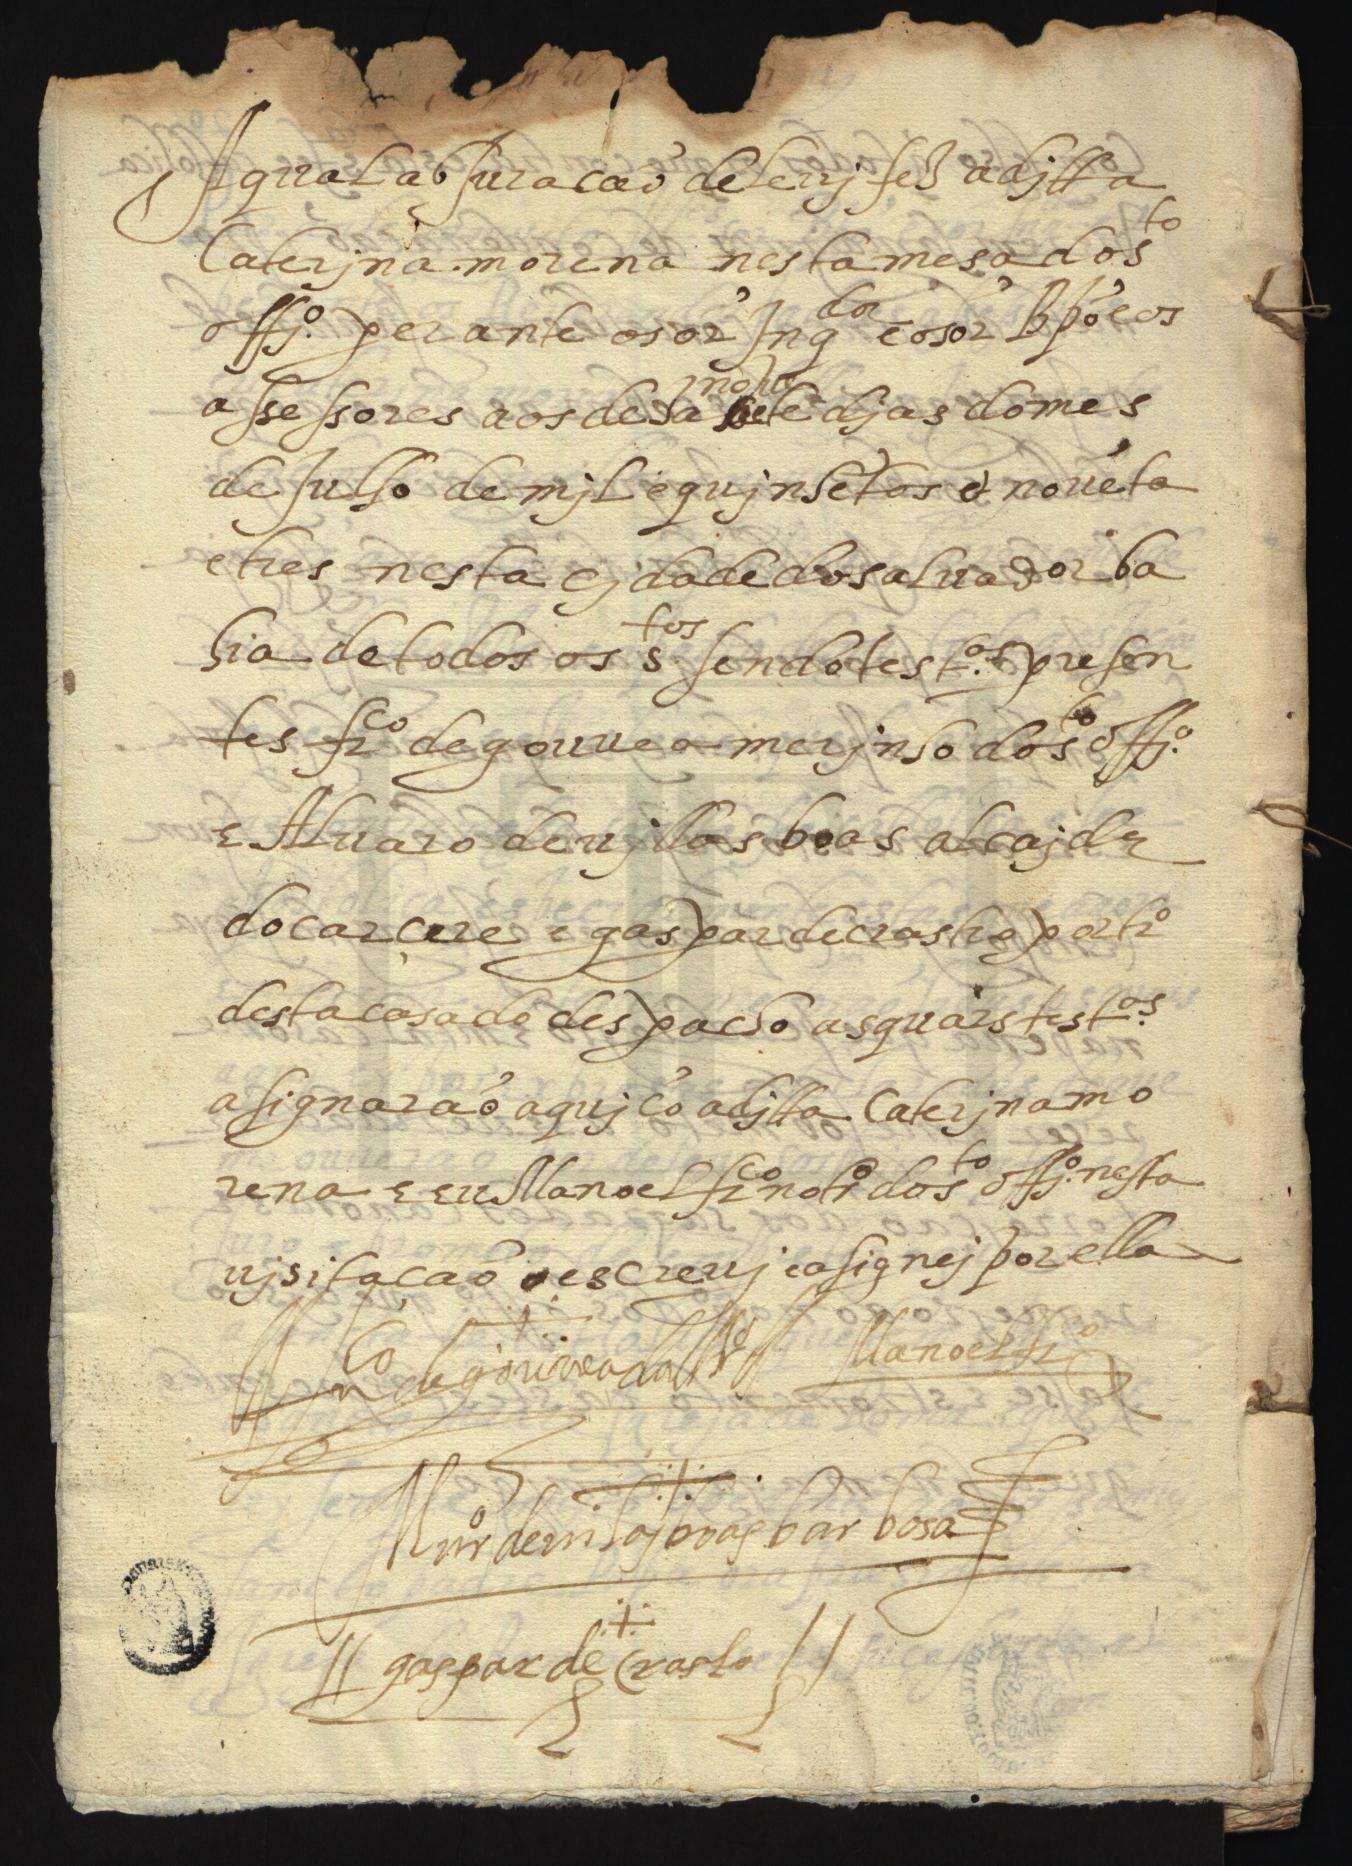 A qual abjuracaõ de leuj fes a djtta
Caterjna morena nesta mesa do sto
offjo perante o sõr Inqdor e o sõr Bpõ e os
assessores aos desa noue djas do mes
de Julho de mjL e qujnhẽtos e nouẽta
e tres nesta cjdade do saluador ba
hia de todos os stos sendo testas presen
tes frco de gouuea merjnho do sto offjo
e Aluaro de ujllas boas alcajde
do carcere e gaspar de crasto portro
desta casa do despacho as quais testas
asignaraõ aquj cõ a djtta Caterjna mo
rena e eu Manoel frco notro do sto offjo nesta
ujsitacaõ o escreuj e asignej por ella
frco de gouvea Manoel frco
Aluro de vilas boas barbosa
gaspar de Crasto